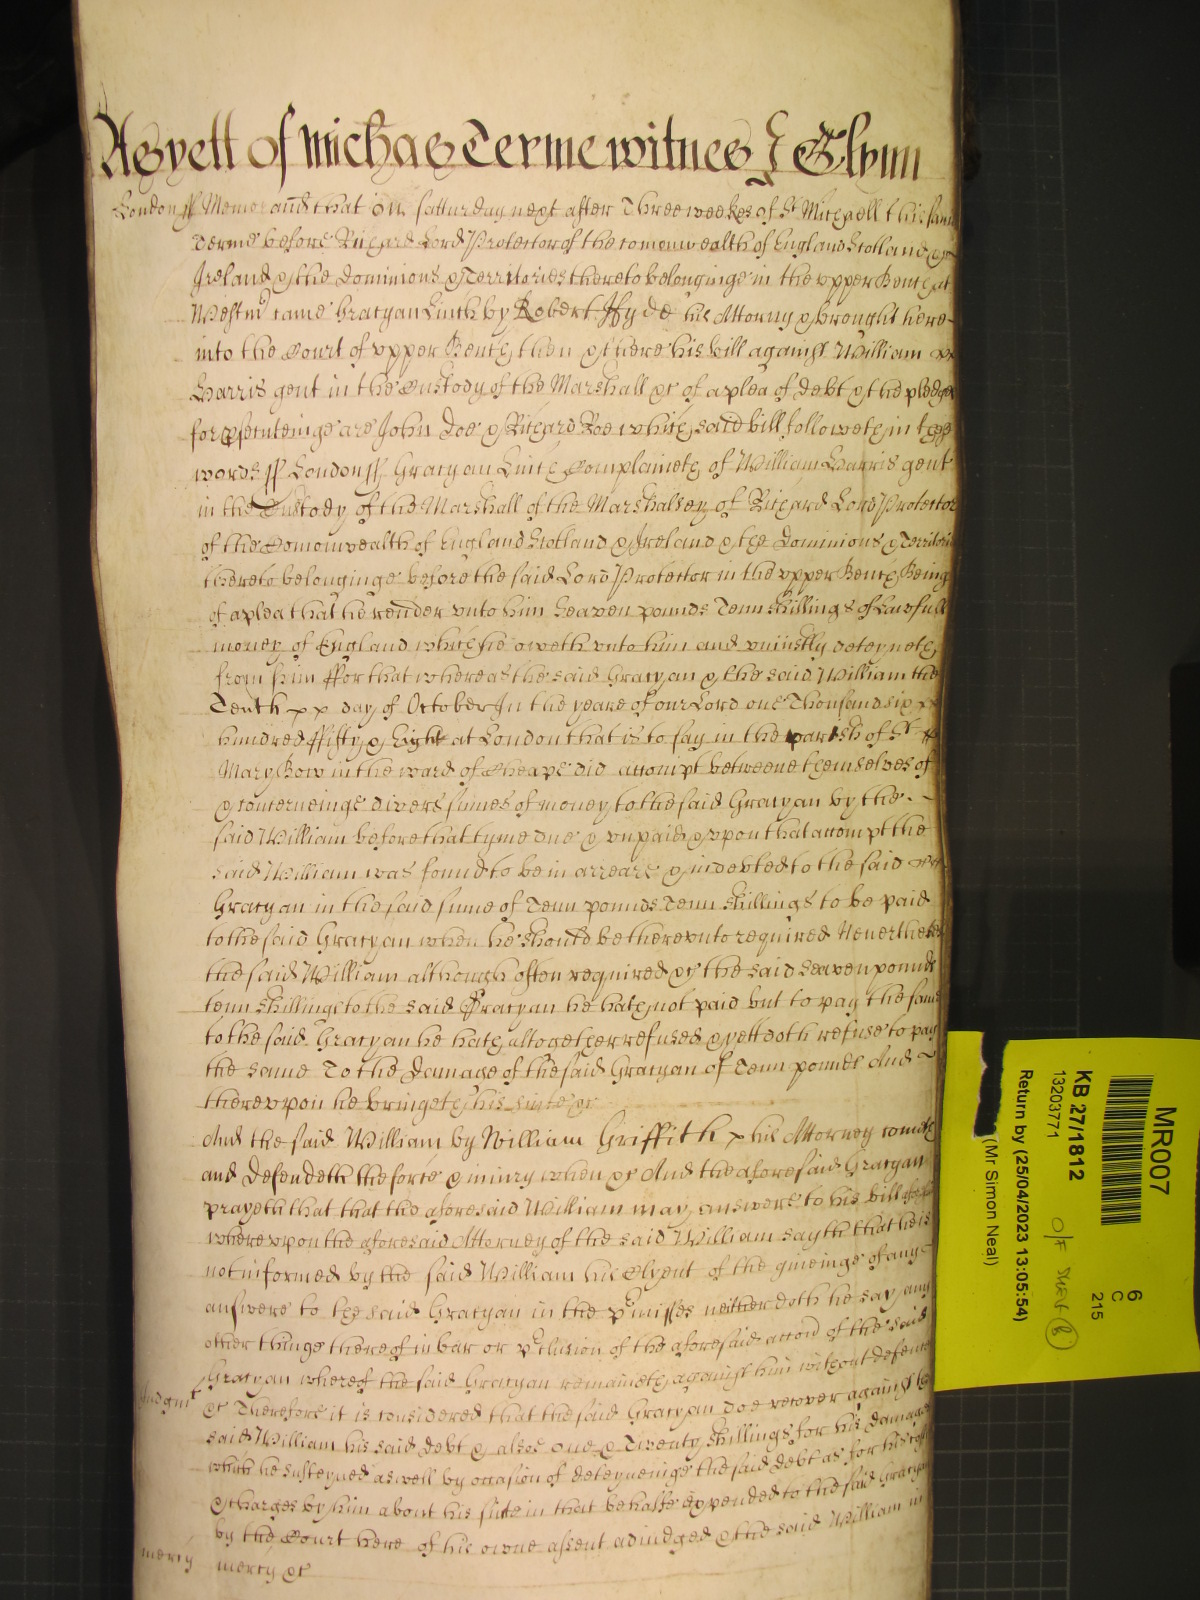 As yett of Michas Terme witnes J Glynn
London ss Memorand that on Satturday next after Three weekes of St Michaell this same
Terme before Richard Lord Protector of the comonwealth of England Scotland &
Ireland & the Dominions & Territories thereto belonginge in the upper Bench at
Westmr came Gracyan Linch by Robert Hyde his Attorny & brought here
into the Court of upper Bench then & there his bill against William
Harris gent in the Custody of the Marshall &c of a plea of debt & the pledges
for psecuteinge are John Doe & Richard Roe which said bill followeth in these
words ss London ss Gracyan Linch Complaineth of William Harris gent
in the Custody of the Marshall of the Marshalsey of Richard Lord Protector
of the Comonwealth of England Scotland & Ireland & the Dominions & Territories
thereto belonginge before the said Lord Protector in the upper Bench Being
of a plea that he render unto him Seaven pounds Tenn shillings of Lawfull
money of England which he oweth unto him and uniustly deteyneth
from him ffor that whereas the said Gracyan & the said William the
Tenth day of October In the yeare of our Lord one Thousand six
hundred ffifty & Eight at London that is to say in the parish of St
Mary Bow in the ward of Cheape did accompt betweene themselves of
& concerneinge divers sumes of money to the said Gracyan by the
said William before that tyme due & unpaid & upon that accompt the
said William was found to be in arreare & indebted to the said
Gracyan in the said sume of Tenn pounds Tenn shillings to be paid
to the said Gracyan when he should be thereunto required Neverthelesse
the said William although often required &c the said Seaven pounds
tenn shillings to the said Gracyan he hath not paid but to pay the same
to the said Gracyan he hath altogether refused & yett doth refuse to pay
the same To the Damage of the said Gracyan of Tenn pounds And
thereupon he bringeth his suite &c
And the said William by William Griffith his Attorney cometh
and Defendeth the force & iniury when &c And the aforesaid Gracyan
prayeth that that the aforesaid William may answere to his bill aforesaid
whereupon the aforesaid Attorney of the said William sayth that he is
not informed by the said William his Clyent of the giveinge of any
answere to the said Gracyan in the pmisses neither doth he say any
other thinge thereof in bar or pclusion of the aforesaid accon of the said
Gracyan whereof the said Gracyan remaineth against him without defence
Judgmt &c Therefore it is considered that the said Gracyan doe recover against the
said William his said debt & alsoe one & Twenty shillings for his damages
which he susteyned aswell by occasion of deteyneinge the said debt as for his costs
& charges by him about his suite in that behalfe expended to the said Gracyan
by the Court here of his owne assent adiudged & the said William in
mercy mercy &c
MR007
6
C
215
KB 27/1812 O/F
13203771
Return by (25/04/2023 13:05:54)
(Mr Simon Neal)